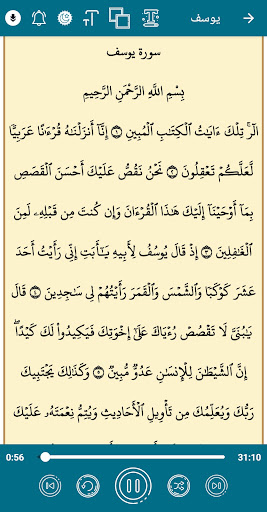 يوسف
سورة يوسف
بِسْمِ اللَّهِ الرَّحْمَنِ الرَّحِيمِ
الٓرۚ تِلۡكَ ءَايَٰتُ ٱلۡكِتَٰبِ ٱلۡمُبِينِ ١ إِنَّآ أَنزَلۡنَٰهُ قُرۡءَٰنًا عَرَبِيّٗا
لَّعَلَّكُمۡ تَعۡقِلُونَ ٢ نَحۡنُ نَقُصُّ عَلَيۡكَ أَحۡسَنَ ٱلۡقَصَصِ
بِمَآ أَوۡحَيۡنَآ إِلَيۡكَ هَٰذَا ٱلۡقُرۡءَانَ وَإِن كُنتَ مِن قَبۡلِهِۦ لَمِنَ
ٱلۡغَٰفِلِينَ ٣ إِذۡ قَالَ يُوسُفُ لِأَبِيهِ يَٰٓأَبَتِ إِنِّي رَأَيۡتُ أَحَدَ
عَشَرَ كَوۡكَبٗا وَٱلشَّمۡسَ وَٱلۡقَمَرَ رَأَيۡتُهُمۡ لِي سَٰجِدِينَ ٤ قَالَ
يَٰبُنَيَّ لَا تَقۡصُصۡ رُءۡيَاكَ عَلَىٰٓ إِخۡوَتِكَ فَيَكِيدُواْ لَكَ كَيۡدًاۖ
إِنَّ ٱلشَّيۡطَٰنَ لِلۡإِنسَٰنِ عَدُوّٞ مُّبِينٞ ٥ وَكَذَٰلِكَ يَجۡتَبِيكَ
رَبُّكَ وَيُعَلِّمُكَ مِن تَأۡوِيلِ ٱلۡأَحَادِيثِ وَيُتِمُّ نِعۡمَتَهُۥ عَلَيۡكَ
0:56 31:10